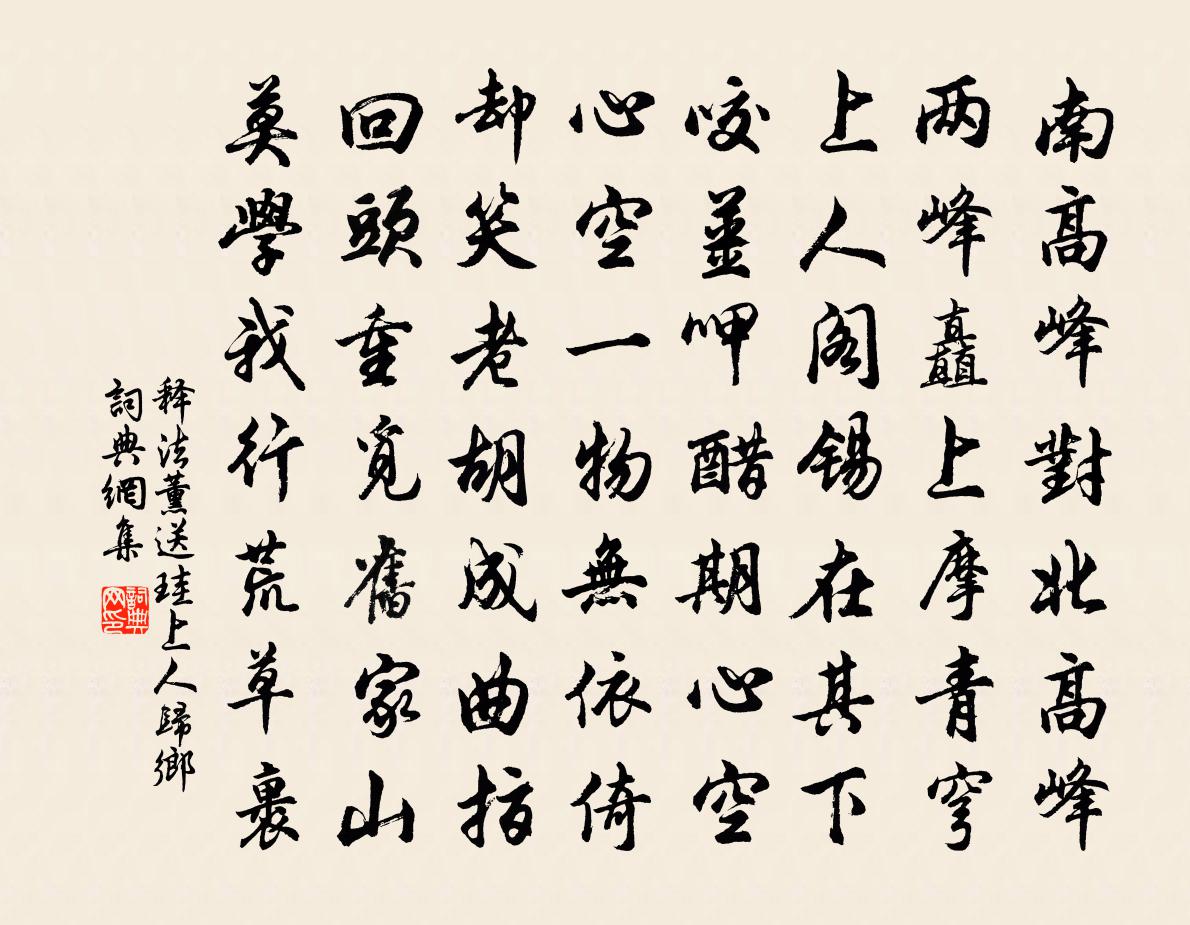 南高峰對北高峰
两峰矗上摩青穹
上人阁錫在其下
咬薑呷醋期心空
心空一物無依倚
却笑老胡成曲指
回頭重覓舊家山
莫學我行荒草裏
释法薰送珪上人歸鄉
詞典網集
詞典
网印